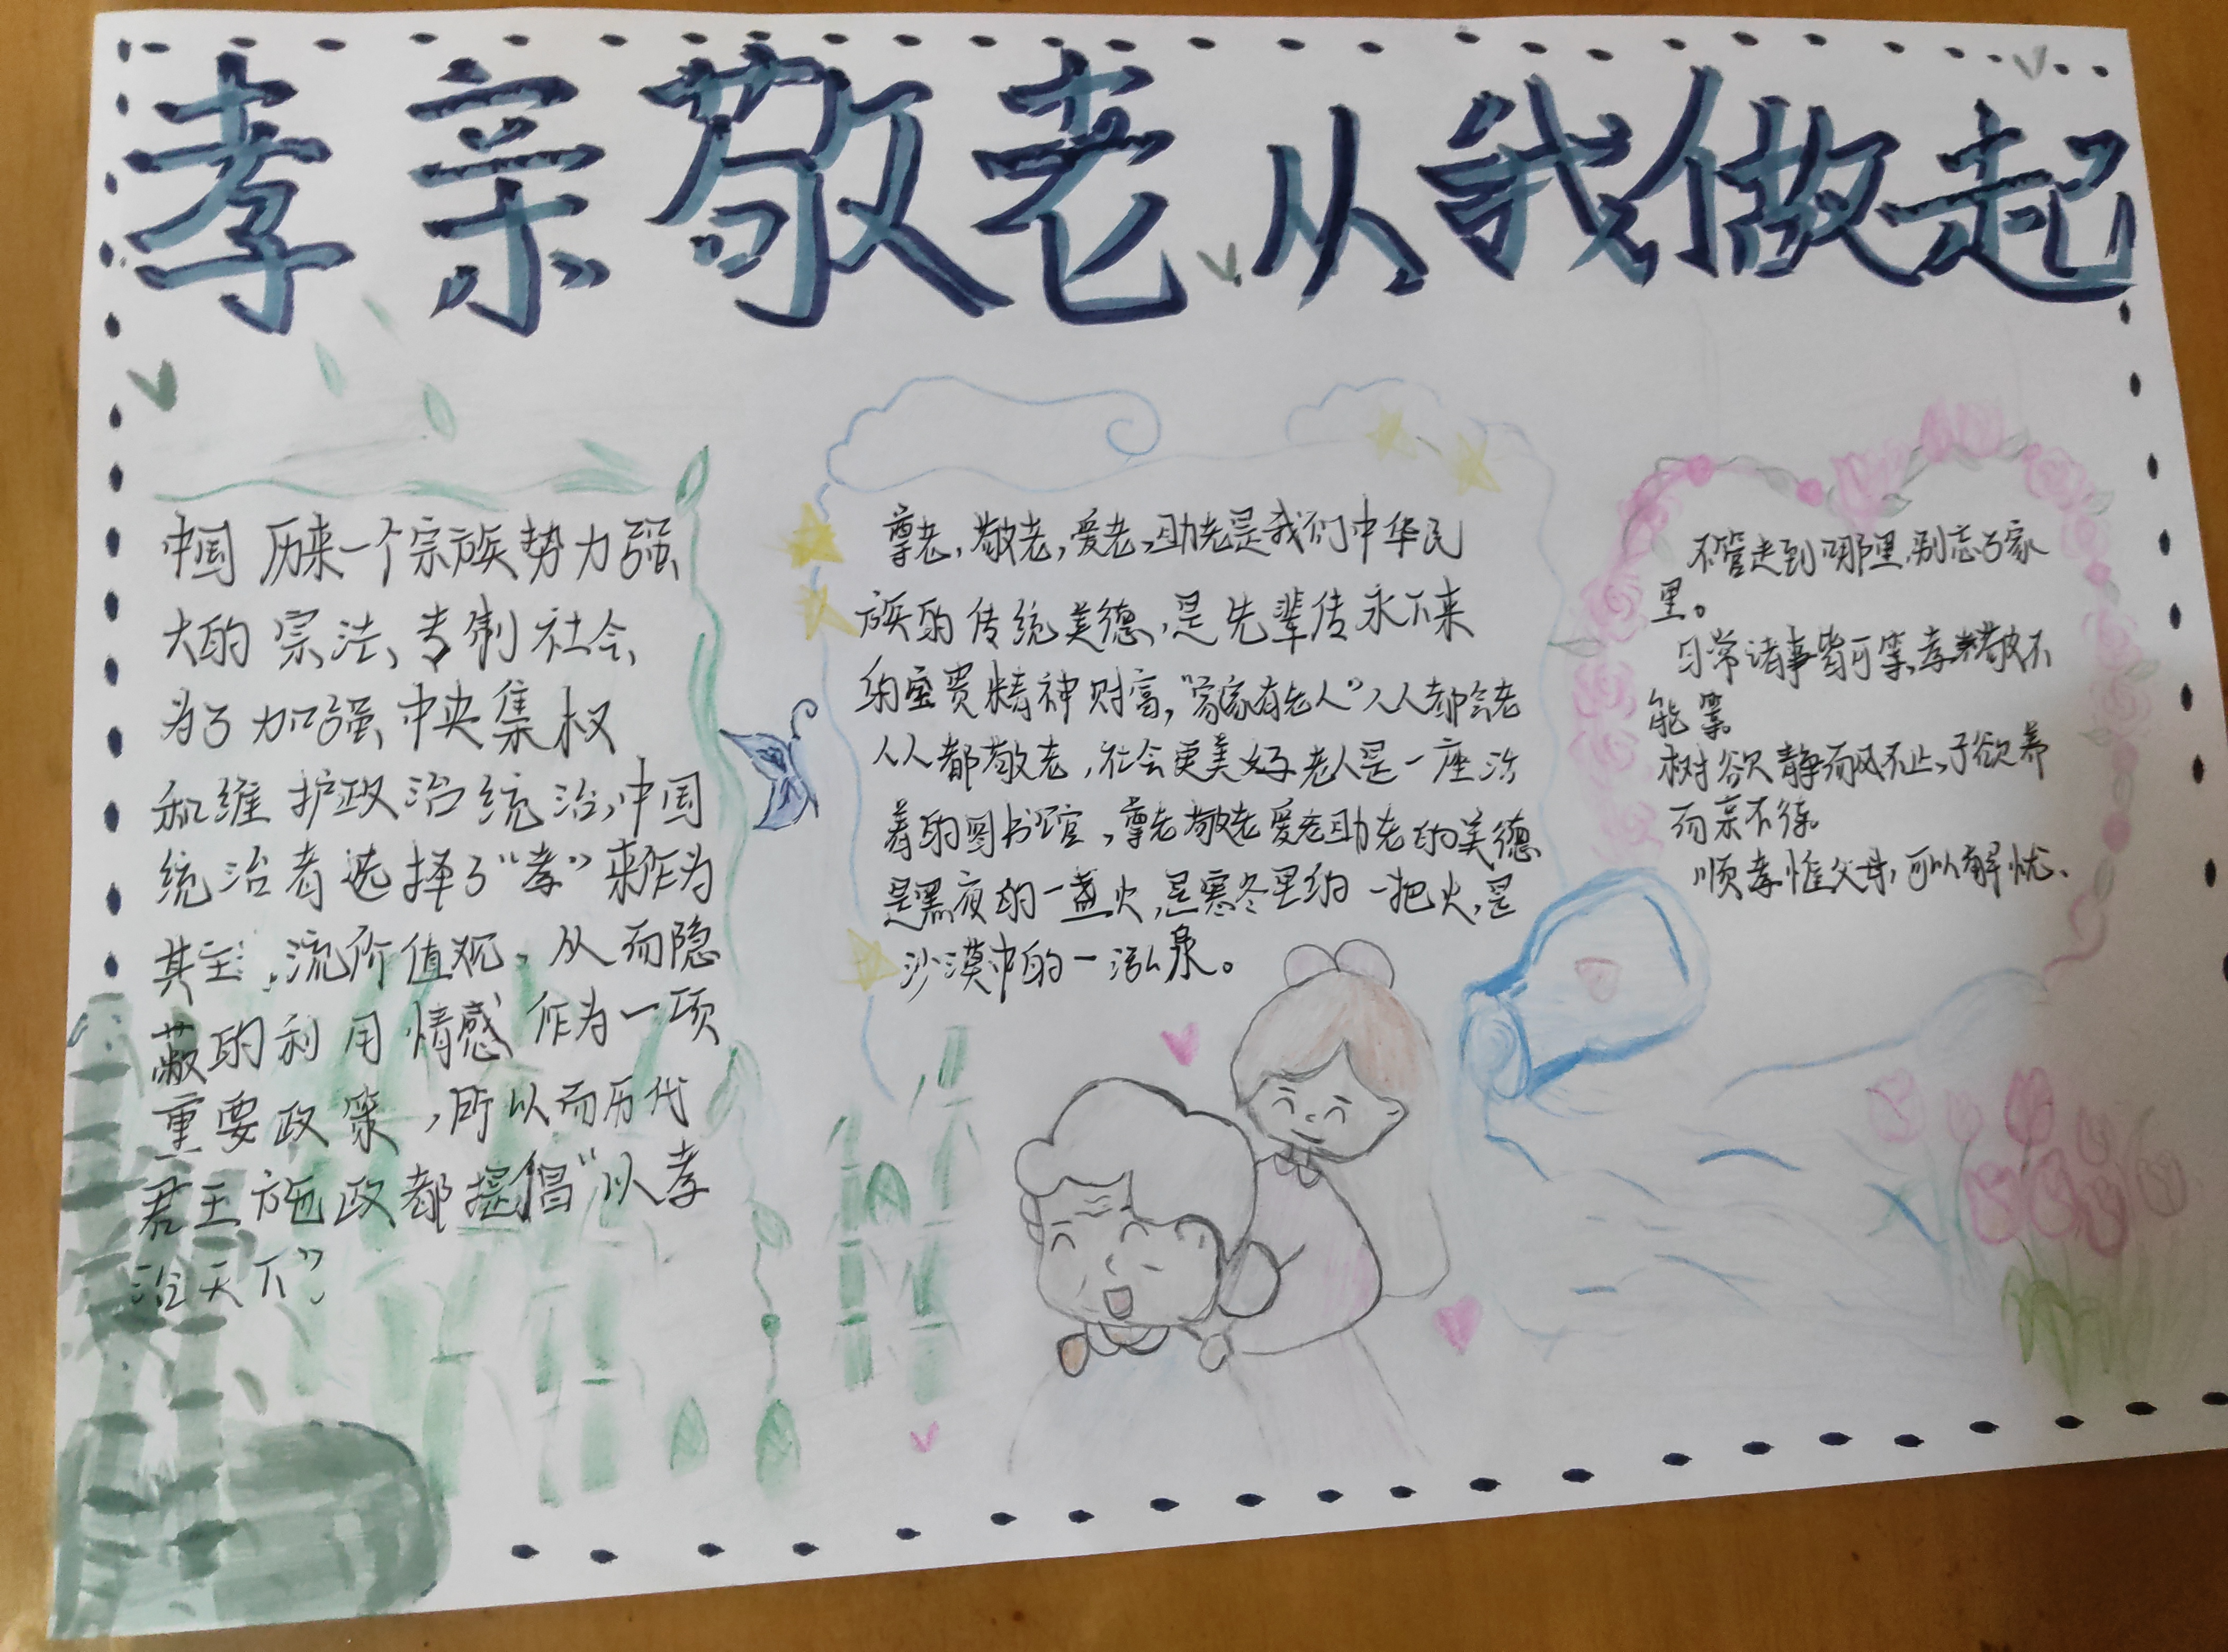 孝亲敬老从我做起
中国历来一个宗族势力强
大的宗法、专制社会、
为了加强中央集权
和维护政治统治,中国
统治者选择了“孝”来作为
其主流价值观、从而隐
蔽的利用情感作为一项
重要政策,所以而历代
君王施政都提倡“以孝
治天下”
尊老,敬老,爱老,助老是我们中华民
族的传统美德,是先辈传承下来
的宝贵精神财富,“家家有老人”人人都会老
人人都敬老,社会更美好老人是一座活
着的图书馆,尊老敬老爱老助老的美德
是黑夜的一盏火,是寒冬里的一把火,是
沙漠中的一泓泉。
不管走到哪里,别忘了家
里。
日常诸事皆可等,孝敬不
能等
树欲静而风不止,子欲养
而亲不待。
顺孝惟父母,可以解忧、